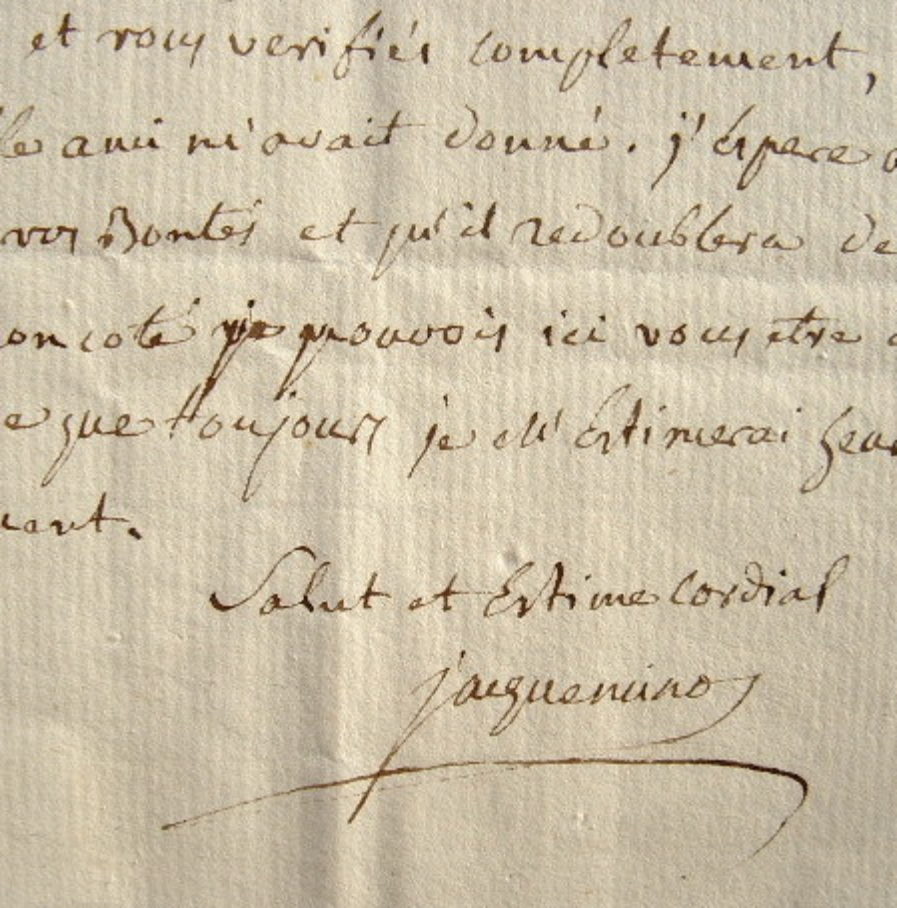 et vous verifiés completement,
le ami m'avait donné. j'espere
vos Bontés et qu'il redoublera de
on coté je pouvois ici vous etre
e que toujours je m'Estimerai heu
vent.
Salut et Estime Cordial
jacqueminot